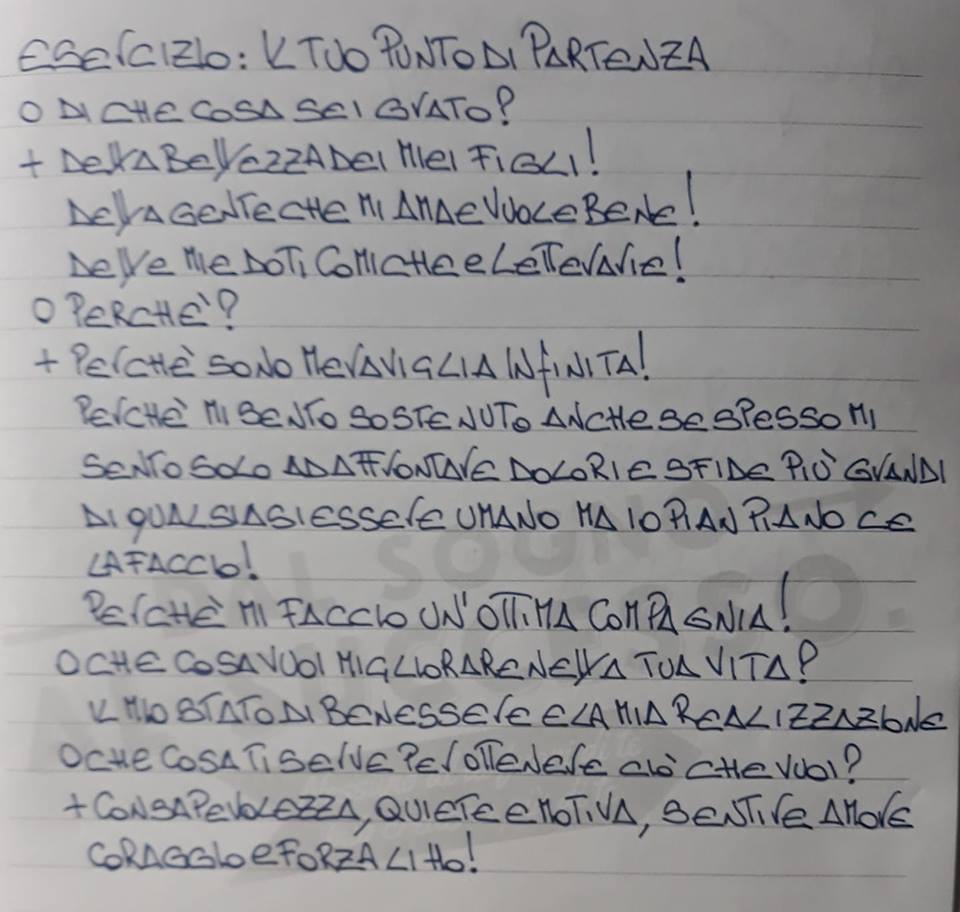 ESERCIZIO: IL TUO PUNTO DI PARTENZA
O DI CHE COSA SEI GRATO?
+ DELLA BELLEZZA DEI MIEI FIGLI!
DELLA GENTE CHE MI AMA E VUOLE BENE!
DELLE MIE DOTI COMICHE E LETTERARIE!
O PERCHÈ?
+ PERCHÈ SONO MERAVIGLIA INFINITA!
PERCHÈ MI SENTO SOSTENUTO ANCHE SE SPESSO MI
SENTO SOLO AD AFFRONTARE DOLORI E SFIDE PIÙ GRANDI
DI QUALSIASI ESSERE UMANO MA IO PIAN PIANO CE
LA FACCIO!
PERCHÈ MI FACCIO UN'OTTIMA COMPAGNIA!
O CHE COSA VUOI MIGLIORARE NELLA TUA VITA?
IL MIO STATO DI BENESSERE E LA MIA REALIZZAZIONE
O CHE COSA TI SERVE PER OTTENERE CIÒ CHE VUOI?
+ CONSAPEVOLEZZA, QUIETE EMOTIVA, SENTIRE AMORE
CORAGGIO E FORZA LI HO!
DAL SOGNO
AL SUCCESSO.